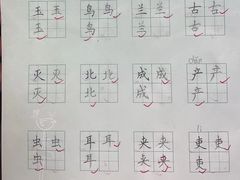 玉 玉 鸟 鸟 兰 兰 古 古
玉 鸟 兰 古
chǎn
灭 灭 北 北 成 成 产 产
灭 北 成 产
虫 虫 耳 耳 夹 夹 吏 吏
虫 耳 夹 夹 吏